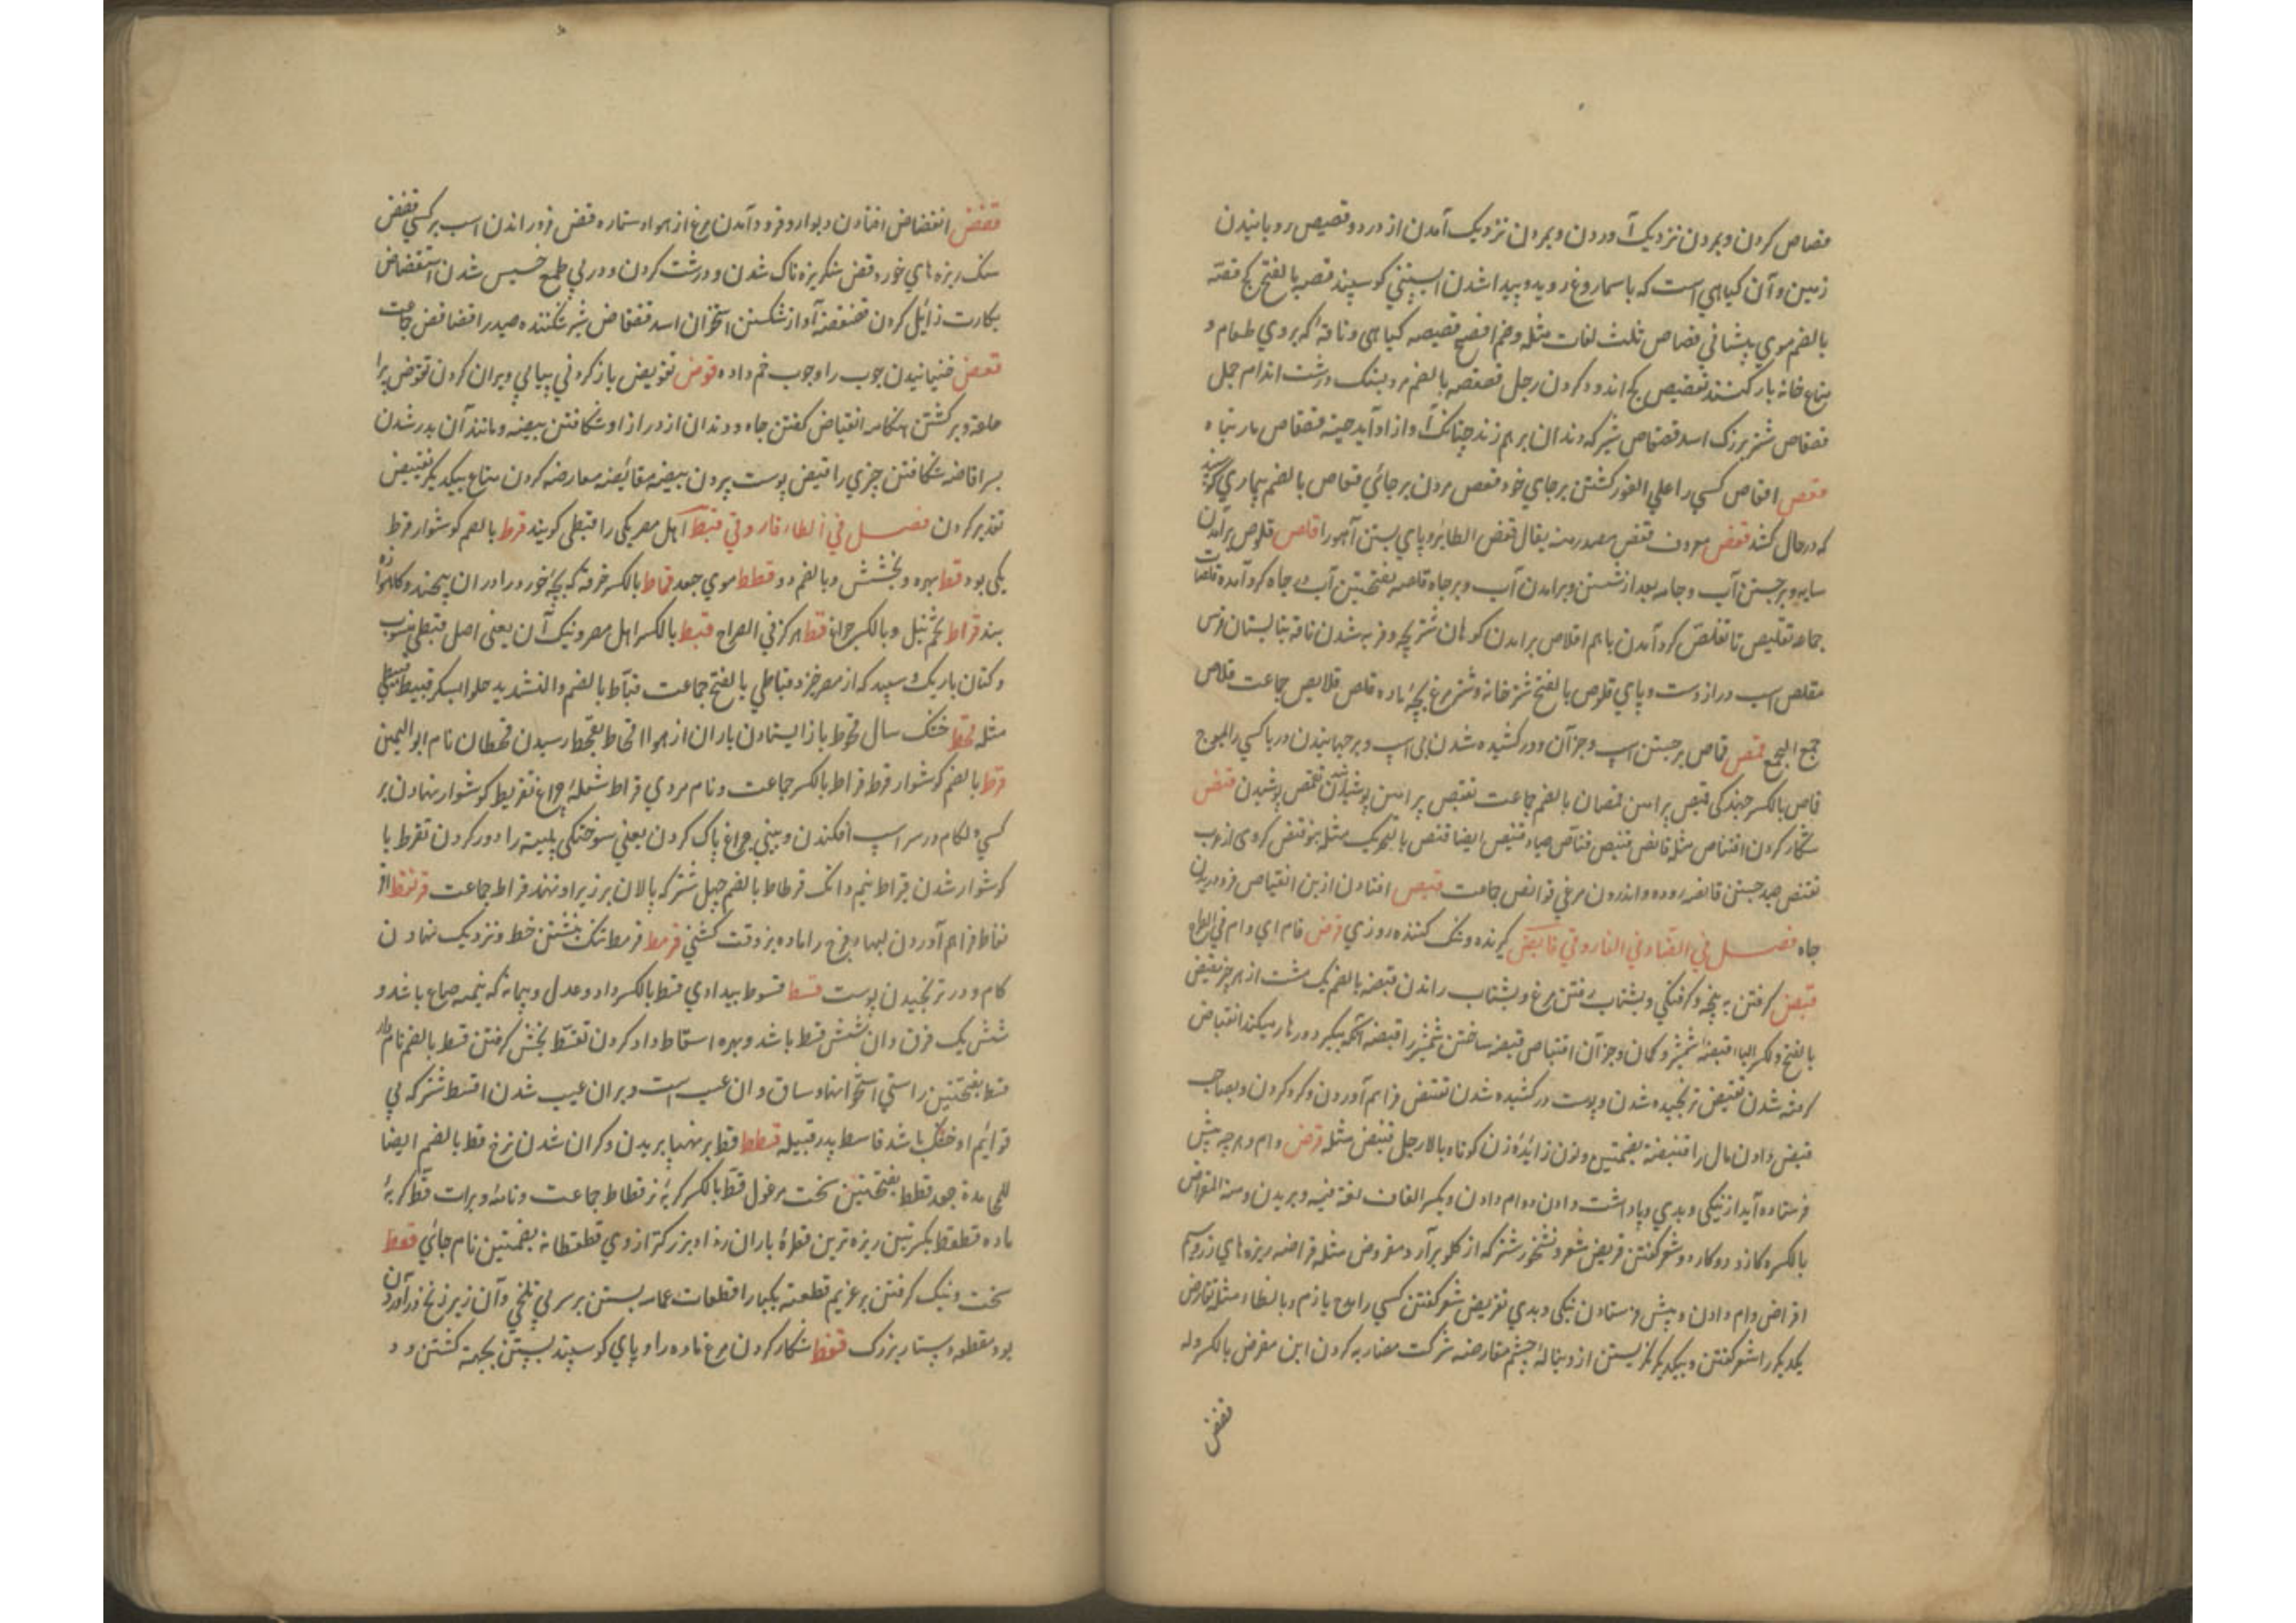 قصاص کردن و بمردن نزدیک آوردن و بمردن نزدیک آمدن از در و و قصیص رویانیدن
زمین و آن کیاهی است که با سماروغ روید و پیدا شدن ابستنی کوسپند قصه بالفتح کچ قصّة
بالضم موی پیشانی قصاص ثلث لغات مثله وضم افصح قصیصه کیاهی و ناقهٔ که بروی طعام و
متاع خانه بار کنند تقصیص بکچ اندود کردن رجل قصقصه بالضم مرد بستک درشت اندام جمل
قصقاص شتر بزرک اسد قصقاص شیر که دندان بر هم زند چنانک آواز او آید حیّه قصقاص مار تباه
قعص اقعاص کسی را علی الفور کشتن بر جای خود قعص مردن بر جائی قعاص بالضم بیماری کوسپند
که در حال کشد قفص معروف قفص مصدر منه یقال قفص الطائر و پای بستن آهو را قلص قلوص بر آمدن
سایه و برجستن آب و جامه بعد از شستن و برامدن آب و بر جاه قلصه بفتحتین آب جاه کرد آمده قلصات
جماعه تقلیص تا تقلص کرد آمدن باهم اقلاص برامدن کوهان شتر بچه و فربه شدن ناقه بتابستان فرس
مقلص اسب دراز دست و پای قلوص بالفتح شتر خانه و شتر مرغ بچهٔ ماده قلص قلایص جماعت قلاص
جمع الجمع قمص قماص برجستن اسب و جز آن و در کشیده شدن پی اسب و برجهانیدن دریا کسی را بموج
قماص بالکسر جهندکی قمیص پراهن قمصان بالضم جماعت تقمیص پراهن پوشیدن تقمص پوشیدن قنص
شکار کردن اقتناص مثله قانص قنیص قناص صیاد قنیص ایضا قنص بالتحریک مثله بنو قنص کروهی از عرب
تقنص صید جستن قانصه روده و اندرون مرغی قوانص جماعت قیص افتادن از بن انقیاص فرو دریدن
جاه فصل فی القاف فی الضاد وفی قابض کیرنده و تنک کننده روزی قرض وام ای وام فی الطاع
قبض کرفتن به پنجه و کرفتکی و بشتاب رفتن مرغ و بشتاب راندن قبضه بالضم یک مشت از هر چیز مقبض
بالفتح و کسر الباء قبضهٔ شمشیر و کمان و جز آن اقتباض قبضه ساختن شمشیر را قبضه آنکه بیکیرد و رها میکند انقباض
کرفته شدن تقبیض ترنجیده شدن و پوست در کشیده شدن تقبض فراهم آوردن و کرد کردن و بصاحب
قبض دادن مال را قنبضة بضمتین ونون زائدهٔ زن کوتاه بالا رجل قنبض مثله قرض وام و هر چه پیش
فرستاده آید از نیکی و بدی و پاداشت دادن و وام دادن و بکسر القاف لغة فیه و بریدن ومنه المقراض
بالکسر کازد دو کارد و شعر کفتن قریض شعر و نشخور شتر که از کلو برآرد مقروض مثله قراضه ریزه های زر و سیم
اقراض وام دادن و پیش فرستادن نیکی و بدی تقریض شعر کفتن کسی را مدح یا ذم وبالظاء مثله تقارض
یکدیکر را شعر کفتن و بیکدیکر نکریستن از دنبالهٔ چشم مقارضه شرکت مضاربه کردن ابن مقرض بالکسر وله
قضض
قضض انقضاض افتادن دیوار و فرود آمدن مرغ از هوا و ستاره قض فرو راندن اسب بر کسی قضض
سنک ریزه های خورد قض سنکریزه ناک شدن و درشت کردن و در پی طمع خسیس شدن استقضاض
بکارت زایل کردن قضقضه آواز شکستن استخوان اسد قضقاض شیر شکننده صید را قضاقض جماعت
قعض خنیانیدن چوب را وچوب خم داده قوض تقویض باز کردن پیاپی ویران کردن تقوض پراه
حلقه و برکشتن هنکامه انقیاض کفتن جاه و دندان از دراز او شکافتن بیضه و مانند آن بدر شدن
بسر اقاضه شکافتن چیزی را قیض پوست برون بیضه مقائضه معارضه کردن متاع بیکدیکر تقییض
تقدیر کردن فصل فی الطاء قاف وقی قبط اهل مصر یکی را قبطی کویند قرط بالضم کوشوار قرط
یکی بود قط بهره و بخشش وبالضم دو قطط موی جعد قماط بالکسر خرقهٔ که بچهٔ خورد را در ان پیچند و کاهواره
بند قراط تخم تنبل وبالکسر چراغ قط هرکز فی الصراح قبط بالکسر اهل مصر ونیک آن یعنی اصل قبطی منسوب
وکتان باریک و سپید که از مصر خیزد قباطی بالفتح جماعت قباط بالضم والتشدید حلوا بسکر قبیط قبیطی
مثله قحط خشک سال قحوط باز ایستادن باران از هوا اقحاط بقحط رسیدن قحطان نام ابو الیمن
قرط بالضم کوشوار قرط قراط بالکسر جماعت و نام مردی قراط شعلهٔ چراغ تقریط کوشوار نهادن بر
کسی و لکام در سر اسپ افکندن و بینی چراغ پاک کردن یعنی سوختکی پلیته را دور کردن تقرط با
کوشوار شدن قیراط نیم دانک قرطاط بالضم جهل شتر که پالان بر زبر او نهند قراط جماعت قرنفط از
نقاط فراهم آوردن لبها و فرج را ماده بز وقت کشنی قرمط قرمط تنک نبشتن خط و نزدیک نهادن
کام و در ترنجیدن پوست قسط قسوط بیدادی قسط بالکسر داد و عدل و پیمانه که نیمه صاع باشد و
شش یک فرق و ان شش قسط باشد و بهره اسقاط داد کردن تقسط بخش کرفتن قسط بالضم نام دار
قسط بفتحتین راستی استخوانها و ساق و ان عیب است و بر ان عیب شدن اقسط شتر که پی
قوائم او خشک باشد قاسط پدر قبیله قطط قط بر پهنا بریدن و کران شدن نرخ قط بالضم ایضا
للحامدة جعد قطط بفتحتین سخت مرغول قط بالکسر کربهٔ نر قطاط جماعت و نامه و برات قطّه کربهٔ
ماده قطقط بکسرتین ریزه ترین قطرهٔ باران رذاذ بزرکتر از وی قطقطانه بضمتین نام جائی قعط
سخت و تنک کرفتن بر غریم قطعته یکبار اقتعاط عمامه بستن بر سر بی تلحی و آن زیر زنخ در آوردن
بود مقعطه دستار بزرک قفط شکار کردن مرغ ماده را و پای کوسپند بستن بجهة کشتن و د